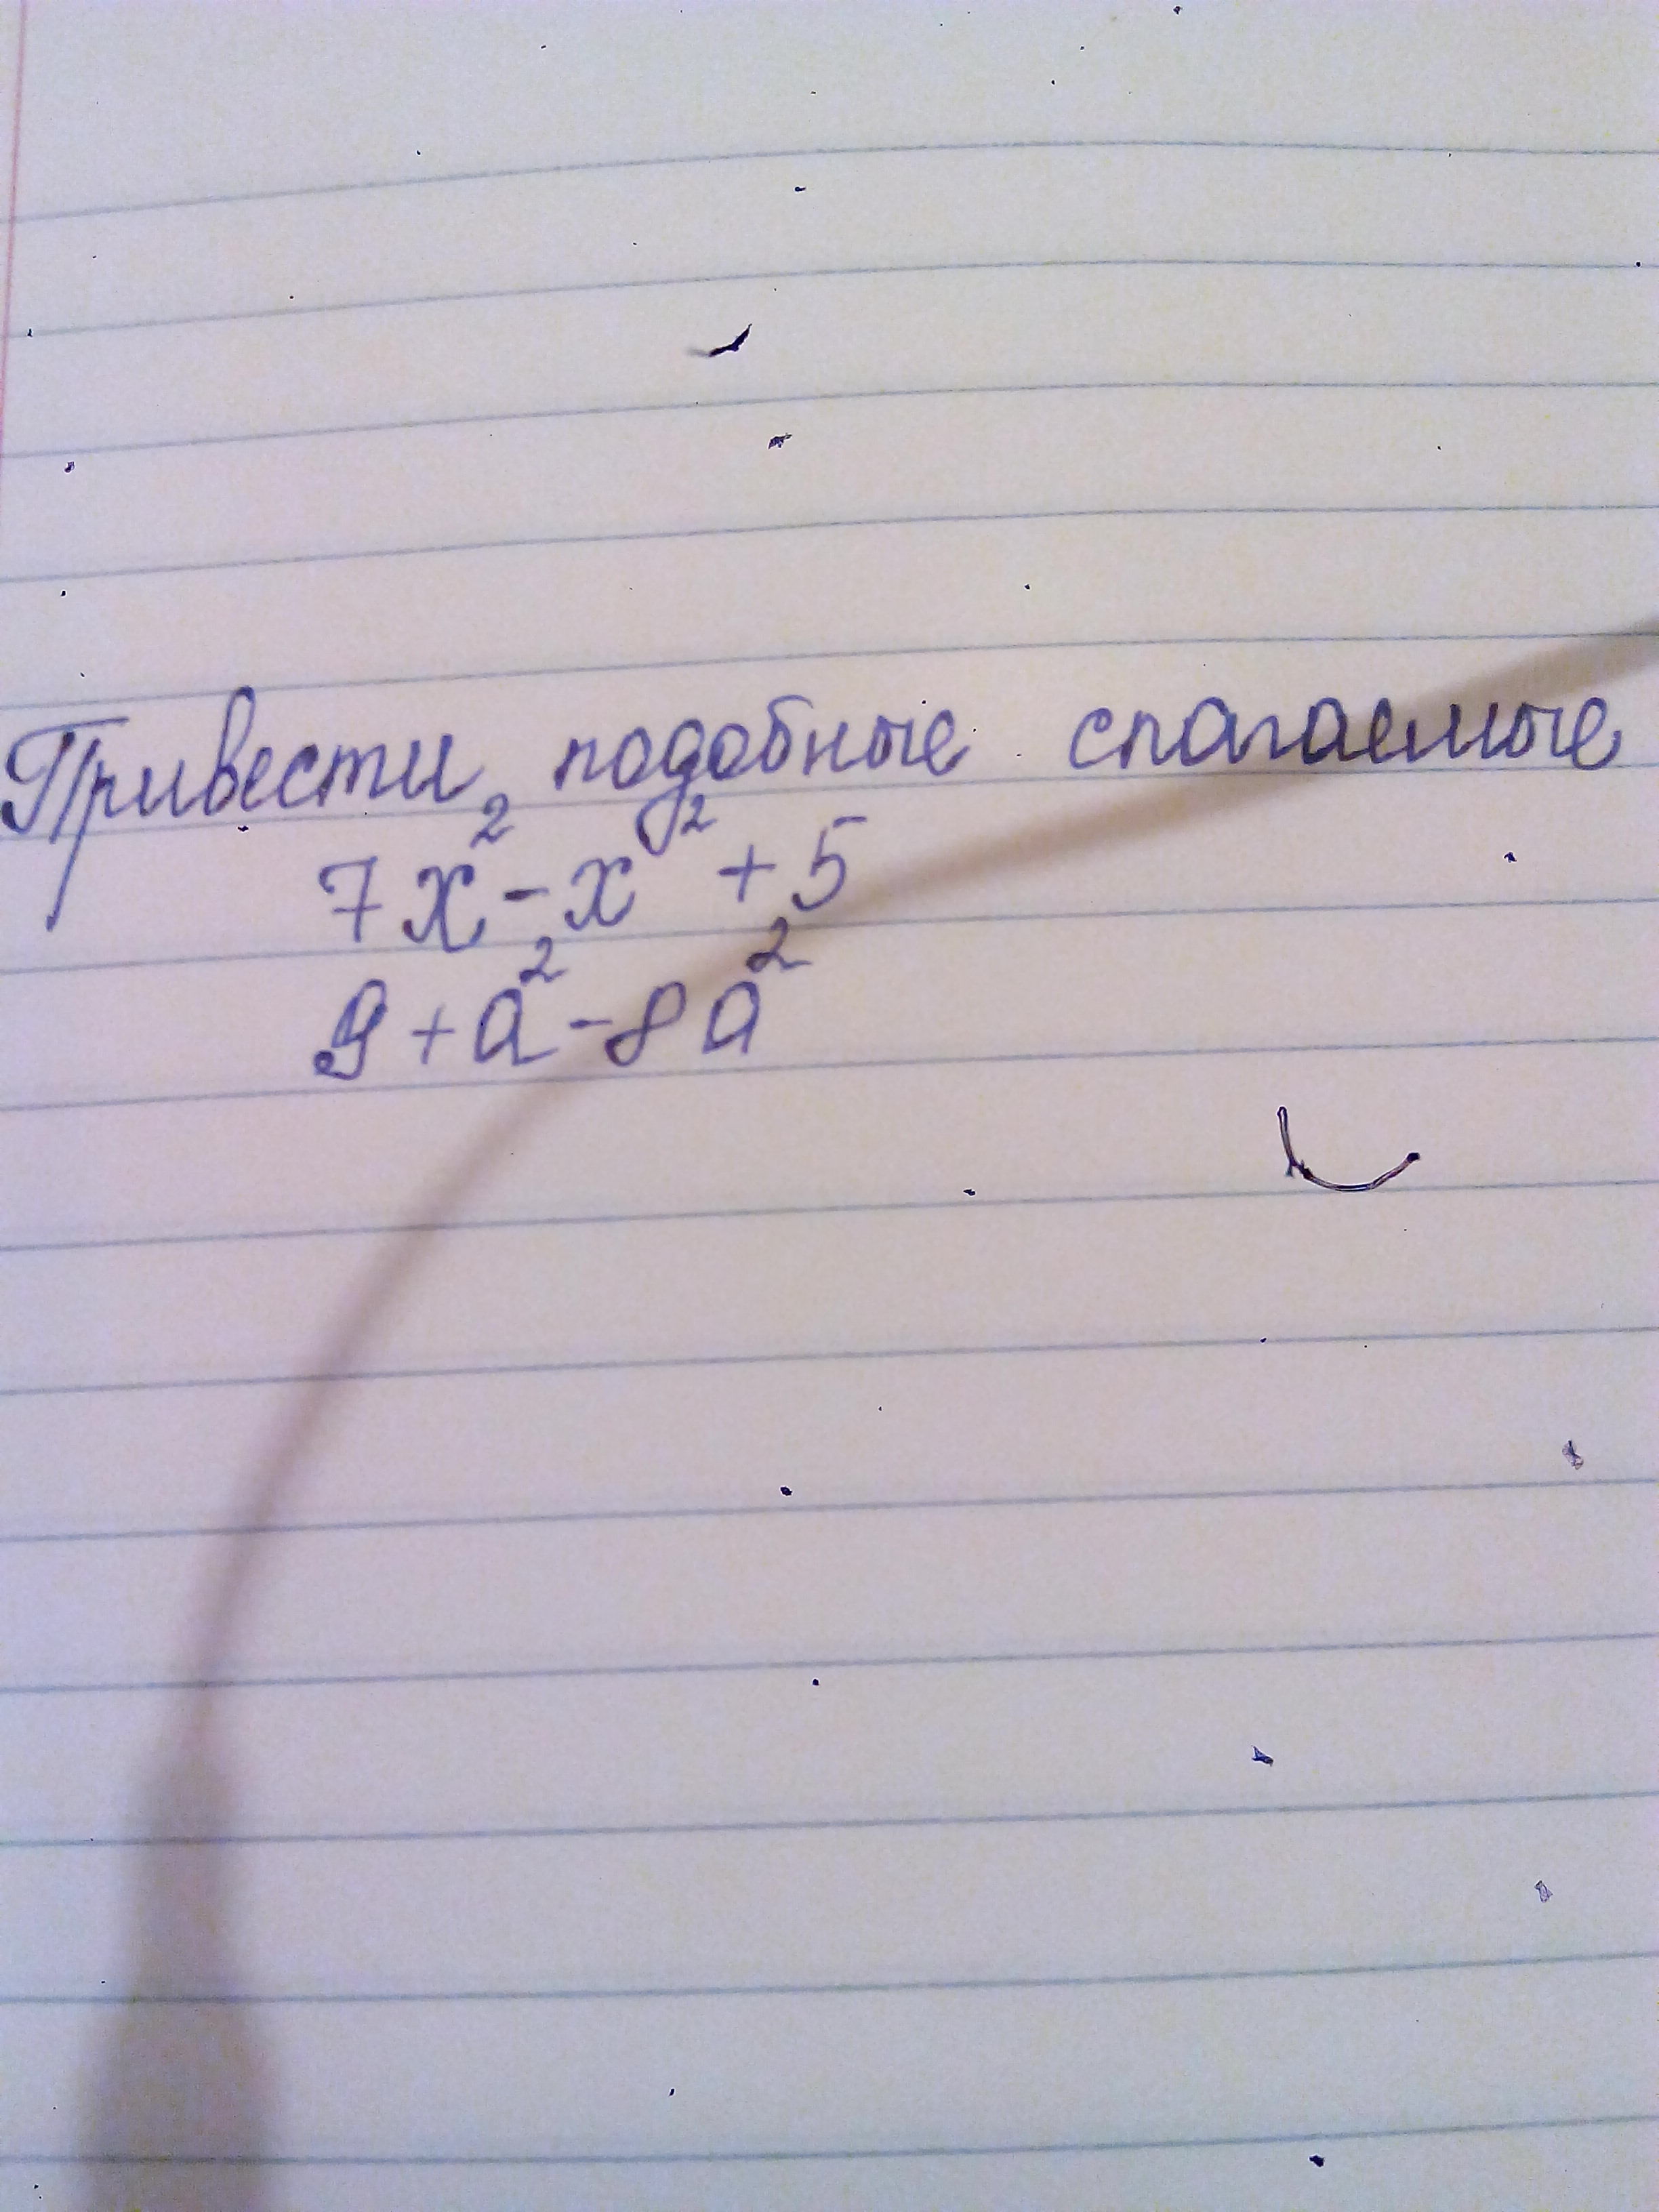 Привести подобные слагаемые
7x² - x² + 5
9 + a² - 8a²